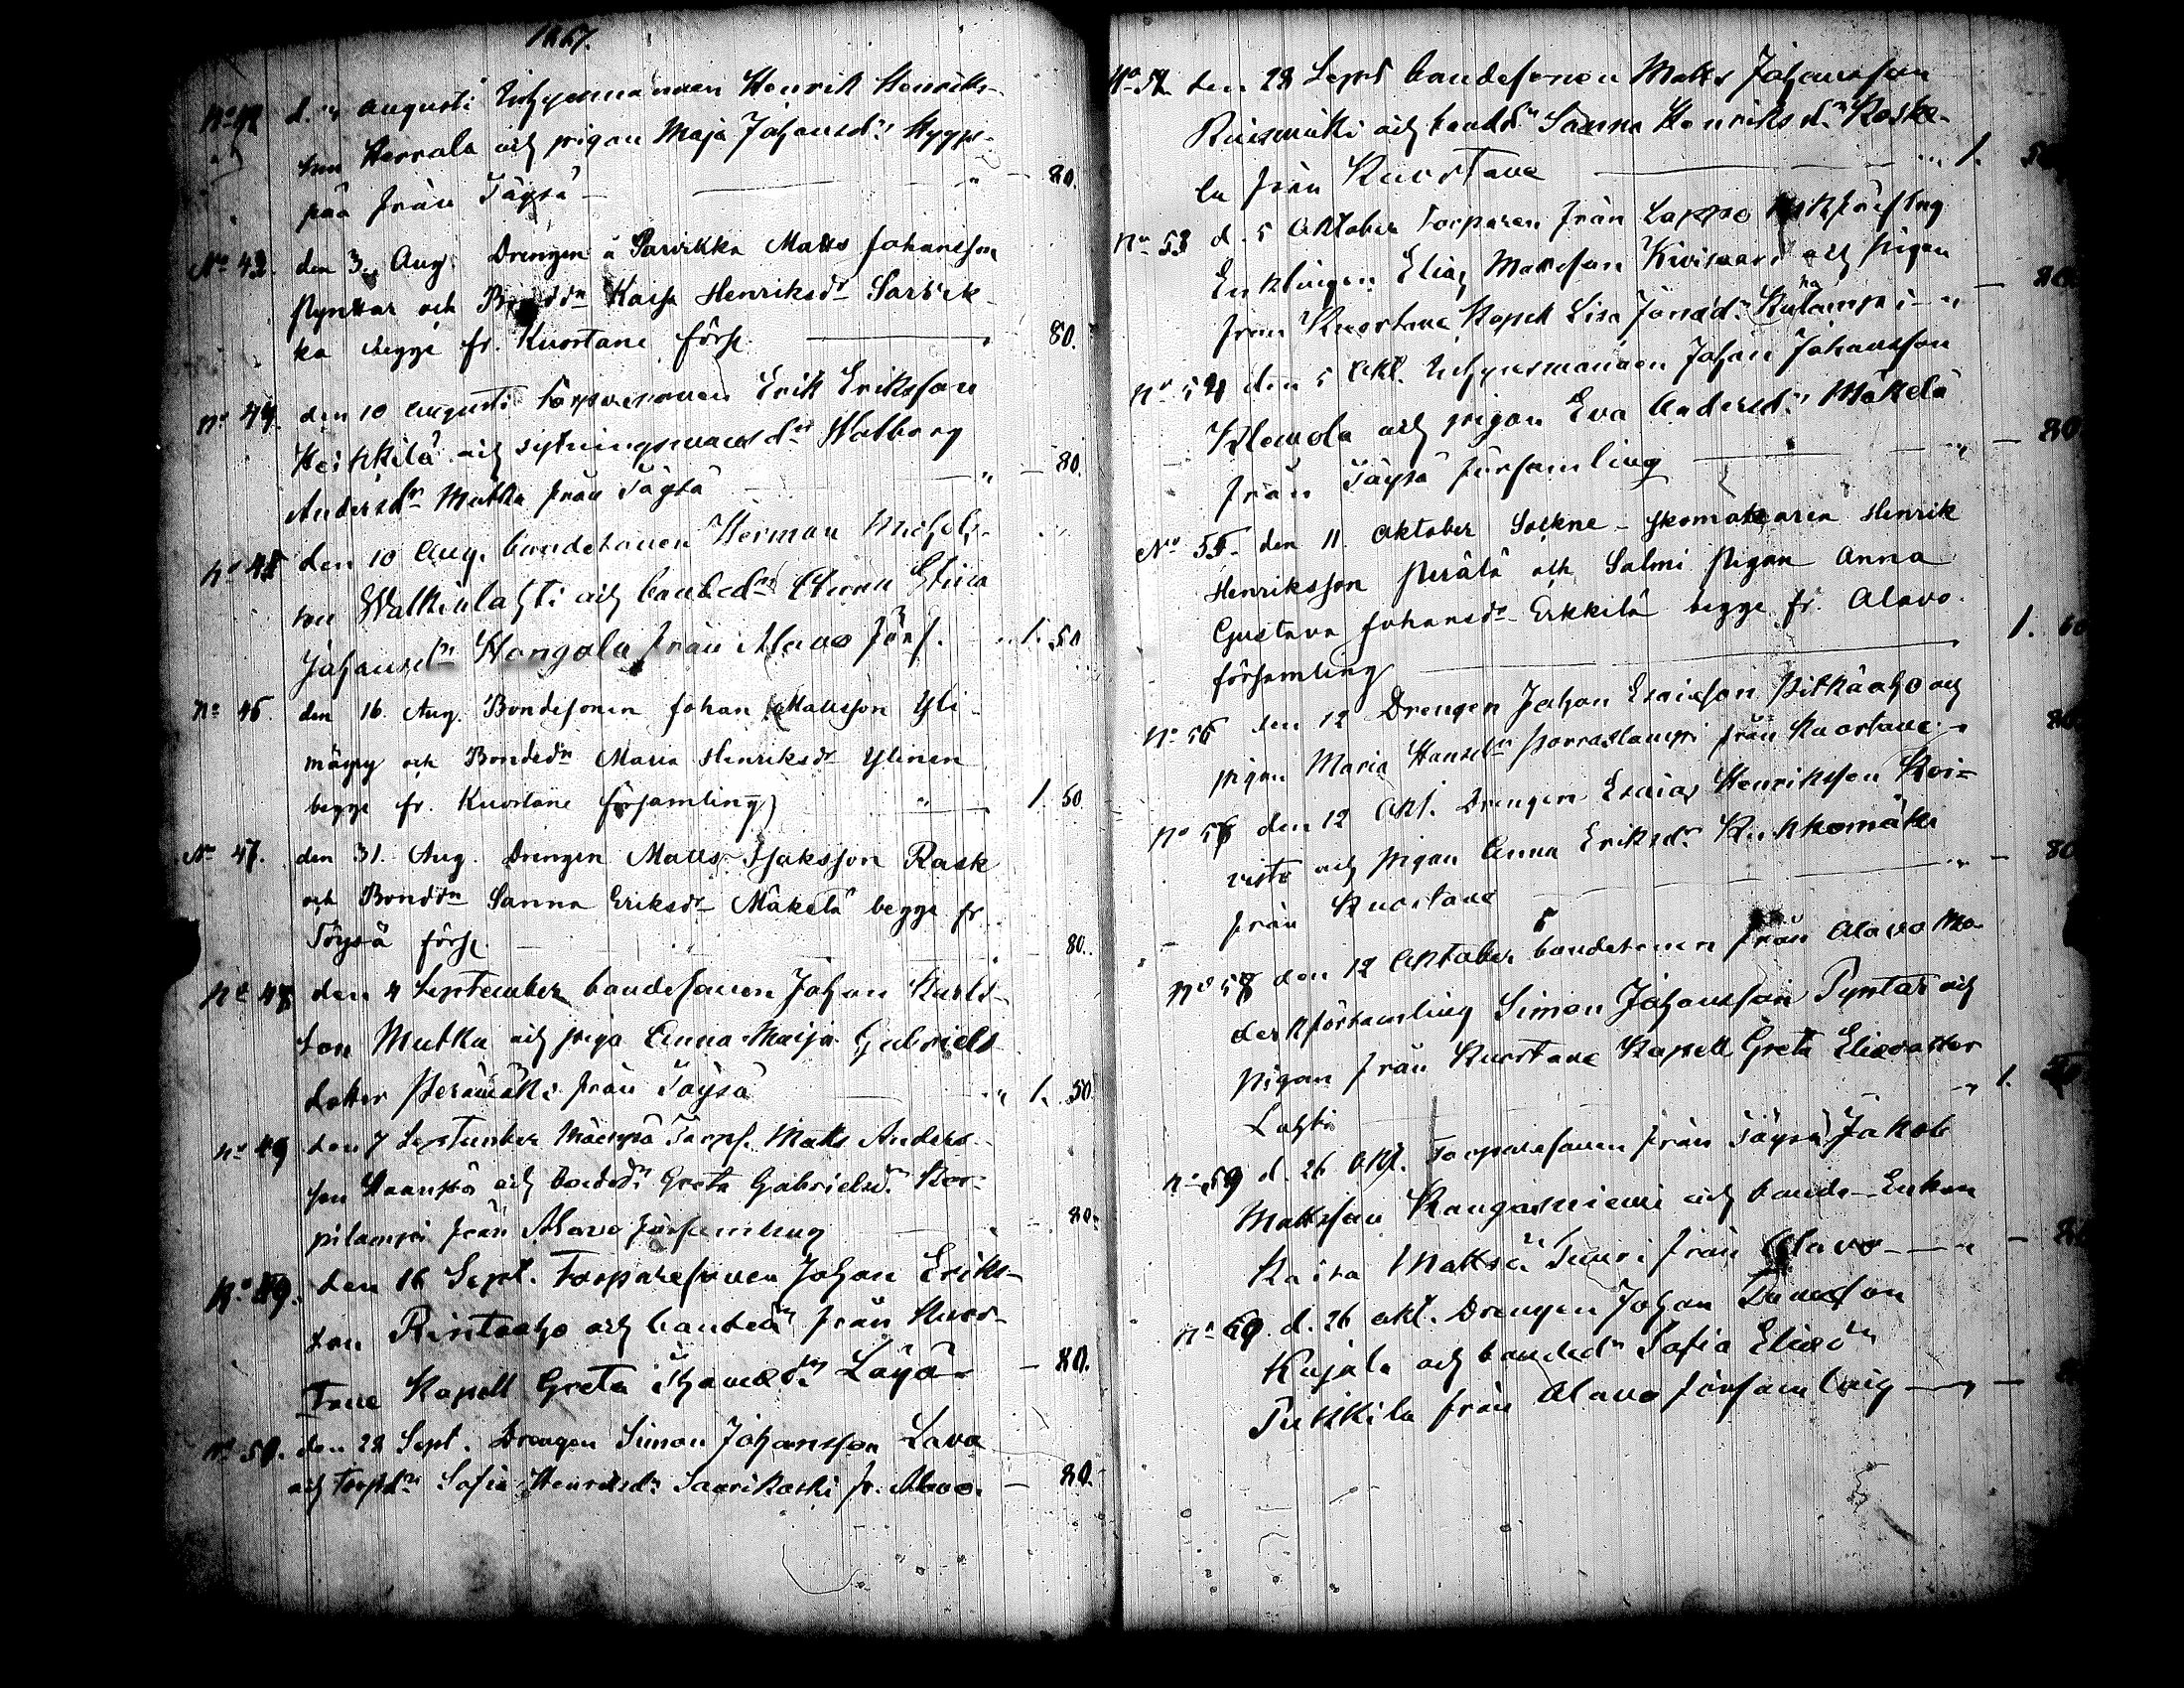 1867.
d. augusti Inhysesmannen Henrik Henriks-
son Herrala och pigan Maja Johansdr Hyypi-
pää från Töysä — " — 80.
No 43. den 3. Aug. Drengen å Sarvikka Matts Johansson
Pynttar och Bonddn Kaisa Henriksdr Sarvik-
ka begge fr. Kuortane förs. — 80.
No 44. den 10 augusti Torparesonen Erik Eriksson
Heikkilä och sytningsmansdn Walborg
Andersdn Mutka från Töysä " — 80.
No 45 den 10 Aug. bondesonen Herman Michels-
son Walkealahti och bondedn Anna Stina
Johansdn Hongola från Alavo förs. 1. 50
No 46. den 16. Aug. Bondesonen Johan Mattsson Yli-
mäyry och Bondedn Maria Henriksdr Ylinen
begge fr. Kuortane församling " 1. 50.
No 47. den 31. Aug. Drengen Matts Isaksson Rask
och Bonddn Sanna Eriksdr Mäkelä begge fr.
Töysä förs. — 80.
No 48 den 4 September bondesonen Johan Karls-
son Mutka och piga Anna Maija Gabriels
dotter Perämäki från Töysä " 1. 50.
No 49 den 7 September Torps. Matts Anders-
son och bondedn Greta Gabrielsdn Kor-
pilampi från Alavo församling — 80.
No 49. den 16 Sept. Torparesonen Johan Eriks-
son Rintaaho och bondedn från Kuor-
tane Kapell Greta — 80.
No 50. den 28 Sept. Drengen Simon Johansson Lava
och torpdn Sofia Henriksdn Saarikoski fr. Alavo. — 80.
No 52 den 28 Sept bondesonen Matts Johansson
Ruismäki och bonddn Sanna Henriksdn Koske-
la från Kuortane — 1. 50
No 53 d. 5 Oktober Torparen från Lappo
Enklingen Elias Mattsson Kivisaari och pigan
från Kuortane Kapell Lisa Jonasdn — 80
No 54 den 5 Okt. Inhysesmannen Johan Johansson
Klemola och pigan Eva Andersdn Mäkelä
från Töysä församling " — 80
No 55. den 11 Oktober Sockne-skomakaren Henrik
Henriksson Perälä och Salmi Pigan Anna
Gustava Johansdr Erkkilä begge fr. Alavo
församling — 1. 60
No 56 den 12 Drengen Johan Esaiasson Pitkäaho och
pigan Maria Hansdn Porraslampi från Kuortane — 80
No 56 den 12 Okt. Drengen Esaias Henriksson Koi-
visto och pigan Anna Eriksdn Kukkomäki
från Kuortane " — 80
No 58 den 12 Oktober bondesonen från Alavo Mo-
derförsamling Simon Johansson Pyntar och
pigan från Kuortane Kapell Greta Eliasdotter
Lahti " 1.
No 59 d. 26 Okt. Torparesonen från Töysä Jakob
Mattsson Kangasniemi och bonde-Enkan
Kaisa Mattsdn Tuuri från Alavo — 80
No 60. d. 26 okt. Drengen Johan
Kujala och bondedn Sofia Eliasdn
Pukkila från Alavo församling —